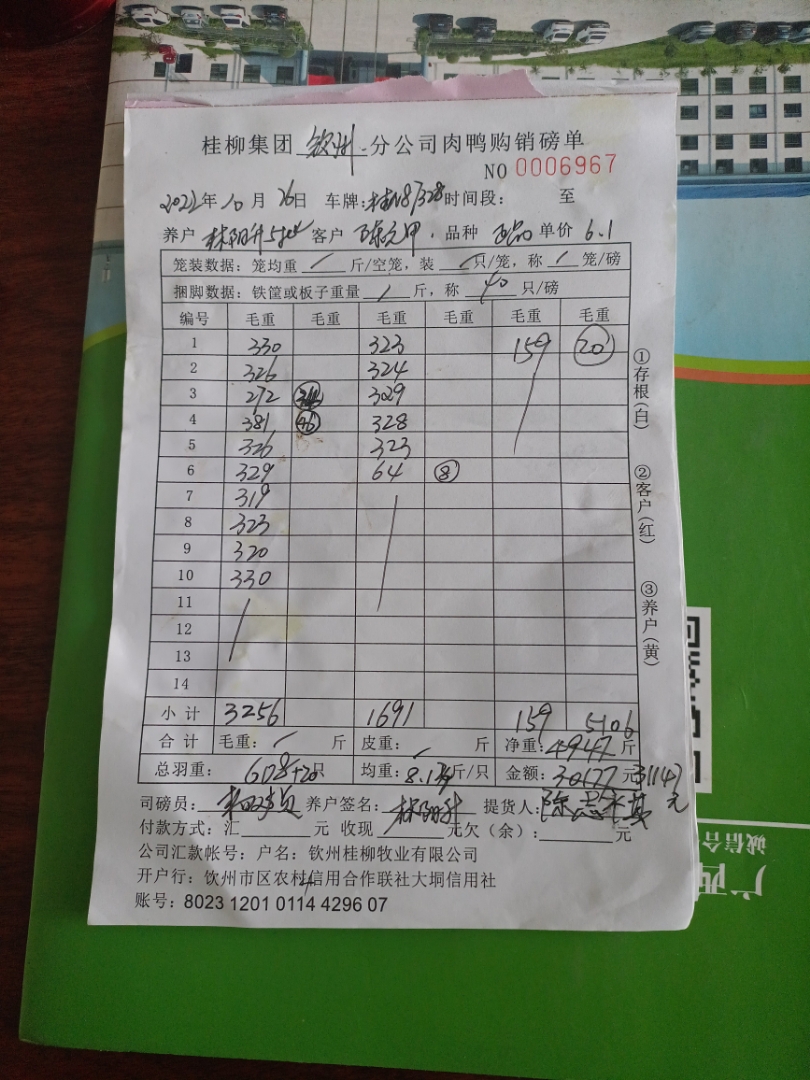 桂柳集团 钦州 分公司肉鸭购销磅单
NO 0006967
2022年 10月 26日 车牌: 时间段: 至
养户 林阳升 客户 品种 单价 6.1
笼装数据: 笼均重 / 斤/空笼, 装 / 只/笼, 称 / 笼/磅
捆脚数据: 铁筐或板子重量 / 斤, 称 40 只/磅
编号 毛重 毛重 毛重 毛重 毛重 毛重
1 330 323 159 20
2 326 324
3 272 329
4 381 46 328
5 326 323
6 329 64 8
7 319
8 323
9 320
10 330
11
12
13
14
小计 3256 1691 159 5106
合计 毛重: / 斤 皮重: / 斤 净重: 4947 斤
总羽重: 608+20 只 均重: 斤/只 金额: 30177 元 31147元
司磅员: 养户签名: 林阳升 提货人:
付款方式: 汇 元 收现 元欠(余): 元
公司汇款帐号: 户名: 钦州桂柳牧业有限公司
开户行: 钦州市区农村信用合作联社大垌信用社
账号: 8023 1201 0114 4296 07
①存根(白)
②客户(红)
③养户(黄)
广西
诚信合